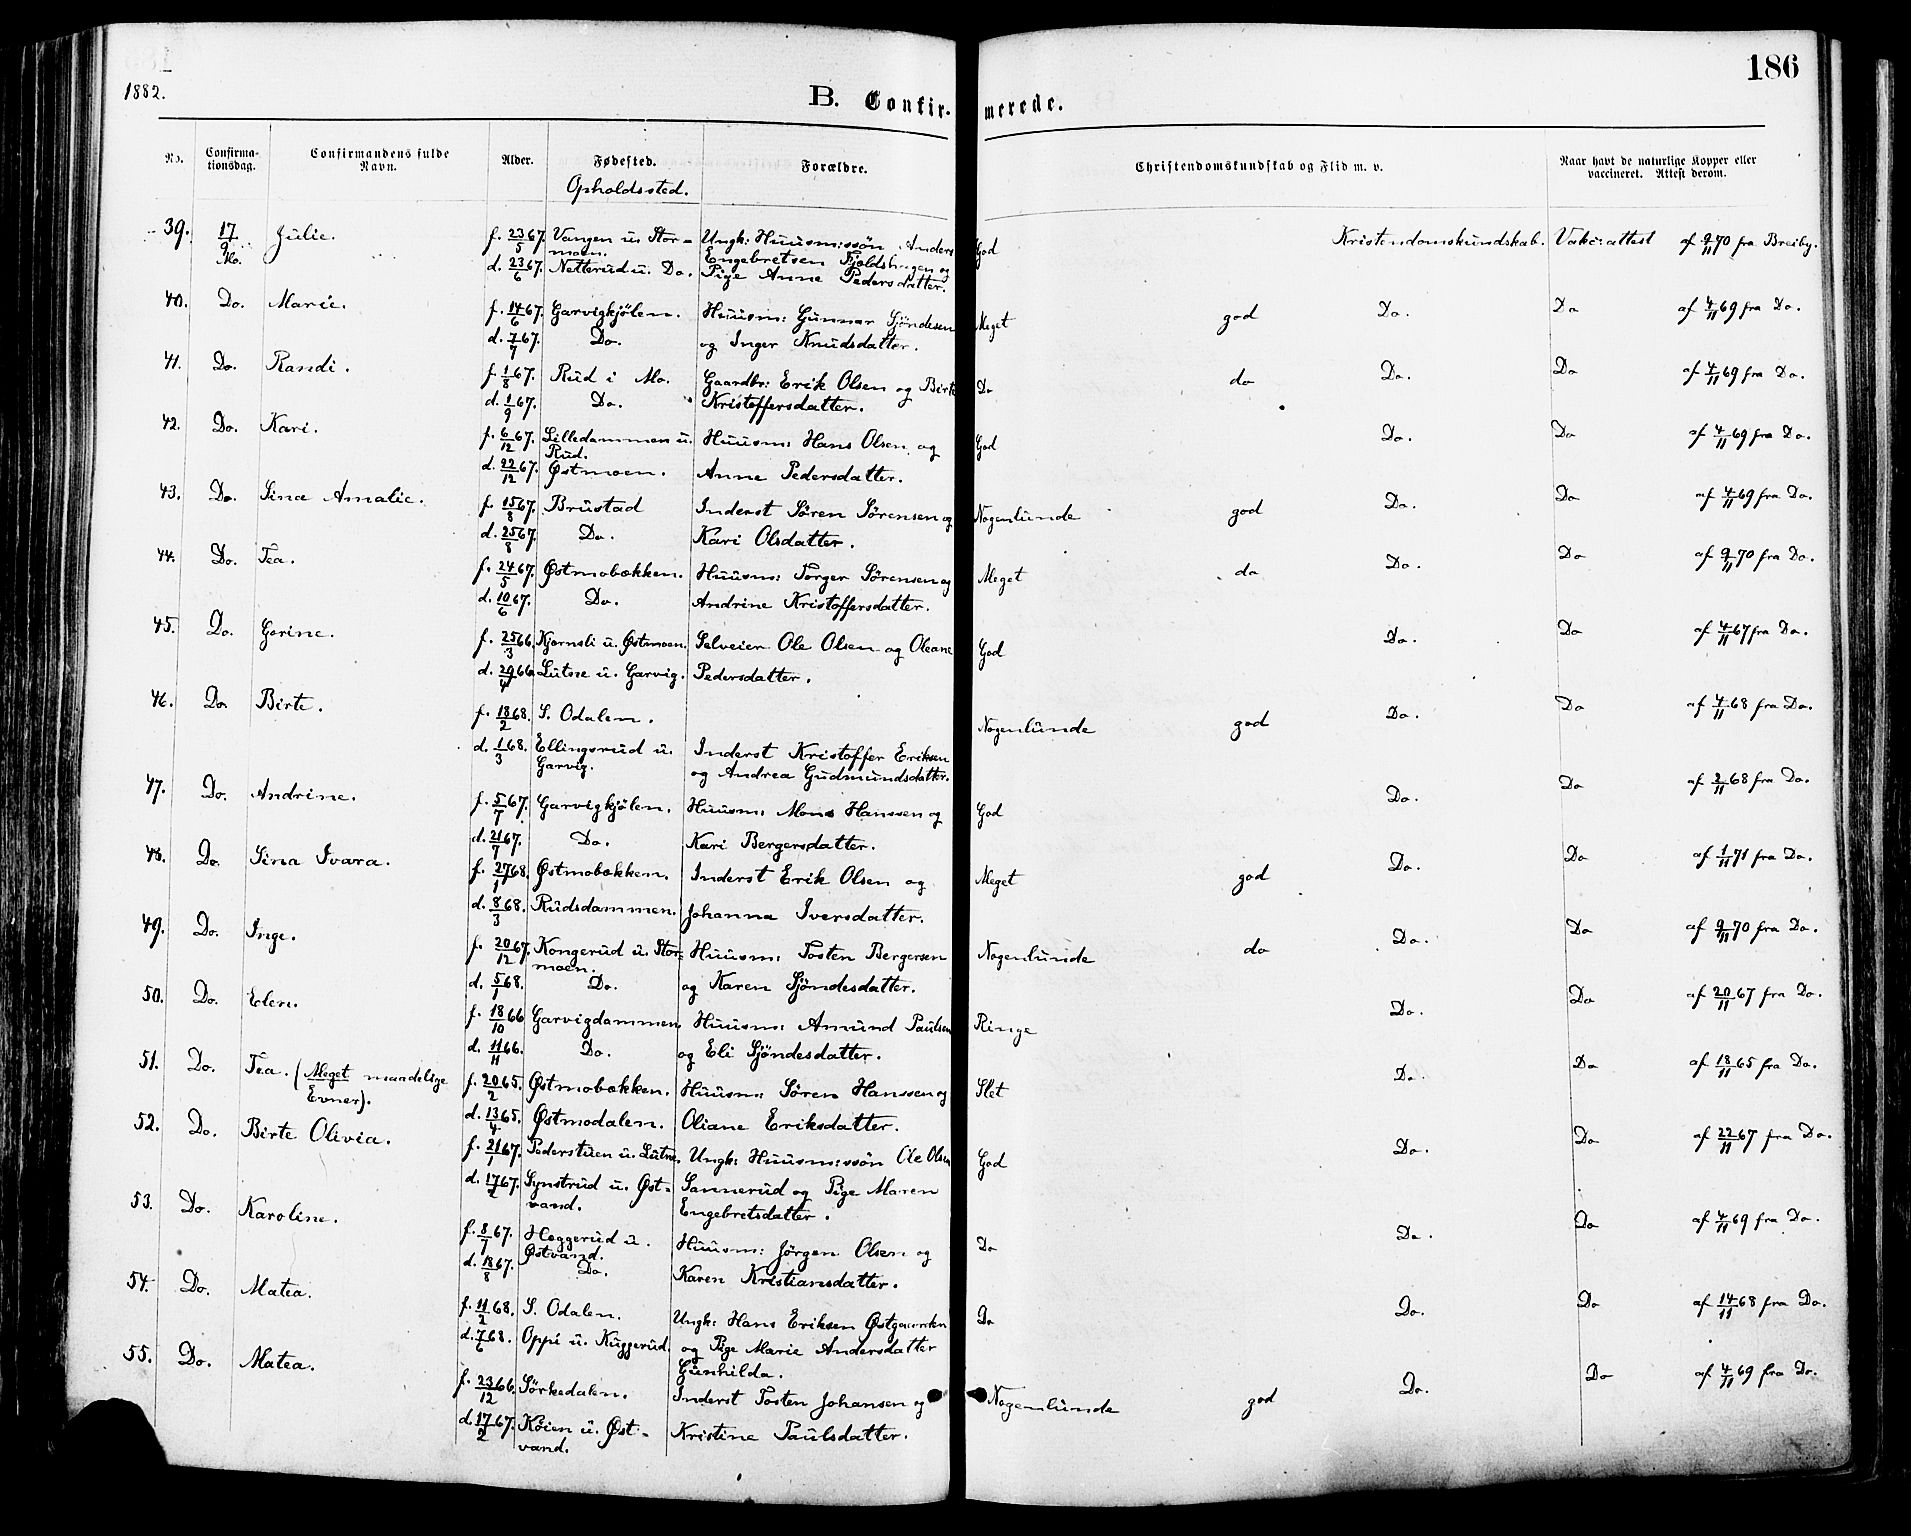 1882.
186
B. Confir-
merede.
No.
Confirma-
tionsdag.
Confirmandens fulde
Navn.
Alder.
Fødested.
Opholdssted.
Forældre.
Christendomskundskab og Flid m. v.
Naar havt de naturlige Kopper eller
vaccineret. Attest derom.
39. 17/9 Mo. Julie. f. 23/5 67. Vangen u. Stor- Ungk: Huusm:ssøn Anders God Kristendomskundskab. Vakc:attest af 9/11 70 fra Breiby.
moen. Engebretsen og
d. 23/6 67. Netterud u. Do. Pige Anne Pedersdatter.
40. Do. Marie. f. 14/6 67. Garvigkjølen. Huusm: Gunnar Sjøndesen Meget god Do. Do af 4/11 69 fra Do.
d. 7/7 67. Do. og Inger Knudsdatter.
41. Do. Randi. f. 1/8 67. Rud i Mo. Gaardbr: Erik Olsen og Birte Do do Do. Do af 4/11 69 fra Do.
d. 1/9 67. Do. Kristoffersdatter.
42. Do. Kari. f. 6/12 67. Lilledammen u. Huusm: Hans Olsen og God Do. Do af 4/11 69 fra Do.
Rud.
d. 22/12 67. Østmoen. Anne Pedersdatter.
43. Do. Sina Amalie. f. 15/8 67. Brustad Inderst Søren Sørensen og Nogenlunde god Do. Do af 4/11 69 fra Do.
d. 25/8 67. Do. Kari Olsdatter.
44. Do. Tea. f. 24/5 67. Østmobækken. Huusm: Torger Sørensen og Meget do Do. Do af 9/11 70 fra Do.
d. 10/6 67. Do. Andrine Kristoffersdatter.
45. Do. Gorine. f. 25/3 66. Kjernsli u. Østmoen. Selveier Ole Olsen og Oleane God Do. Do af 4/11 67 fra Do.
d. 29/4 66. Lutne u. Garvig. Pedersdatter.
46. Do. Birte. f. 18/2 68. S. Odalen. Nogenlunde god Do. Do af 4/11 68 fra Do.
d. 1/3 68. Ellingsrud u. Inderst Kristoffer Eriksen
Garvig. og Andrea Gudmundsdatter.
47. Do. Andrine. f. 5/7 67. Garvigkjølen. Huusm: Mons Hanssen og God Do. Do af 2/11 68 fra Do.
d. 21/7 67. Do. Kari Bergersdatter.
48. Do. Sina Ivara. f. 27/1 68. Østmobækken. Inderst Erik Olsen og Meget god Do. Do af 1/11 71 fra Do.
d. 8/3 68. Rudsdammen. Johanna Iversdatter.
49. Do. Inge. f. 20/12 67. Kongerud u. Stor- Huusm: Tosten Bergersen Nogenlunde do Do. Do af 9/11 70 fra Do.
moen.
d. 5/1 68. Do. og Karen Sjøndesdatter.
50. Do. Elen. f. 18/10 66 Garvigdammen Huusm: Amund Paulsen Ringe Do. Do af 20/11 67 fra Do.
d. 11/11 66. Do. og Eli Sjøndesdatter.
51. Do. Tea. (Meget maadelige f. 20/2 65. Østmobækken. Huusm: Søren Hanssen og Slet Do. Do af 18/11 65 fra Do.
Evner).
d. 13/4 65. Østmodalen. Oliane Eriksdatter.
52. Do. Birte Olivia. f. 21/1 67. Pederstuen u. Lutne. Ungk: Huusm:ssøn Ole Olsen God Do. Do af 22/11 67 fra Do.
d. 17/2 67. Synstrud u. Øst- Sannerud og Pige Maren
vand. Engebretsdatter.
53. Do. Karoline. f. 8/7 67. Heggerud u. Huusm: Jørgen Olsen og Do Do. Do af 4/11 69 fra Do.
Østvand.
d. 18/8 67. Do. Karen Kristiansdatter.
54. Do. Matea. f. 11/2 68. S. Odalen. Ungk: Hans Eriksen Do Do. Do af 14/11 68 fra Do.
d. 7/6 68. Oppi u. Kuggerud. og Pige Marie Andersdatter
Gunhilda.
55. Do. Matea. f. 23/12 66. Sørkedalen. Inderst Tosten Johansen og Nogenlunde god Do. Do af 4/11 69 fra Do.
d. 17/2 67. Køien u. Øst- Kristine Paulsdatter.
vand.